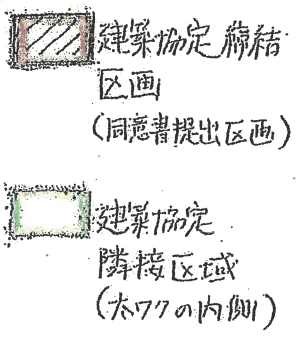 建築協定締結
区画
(同意書提出区画)
建築協定
隣接区域
(太ワクの内側)